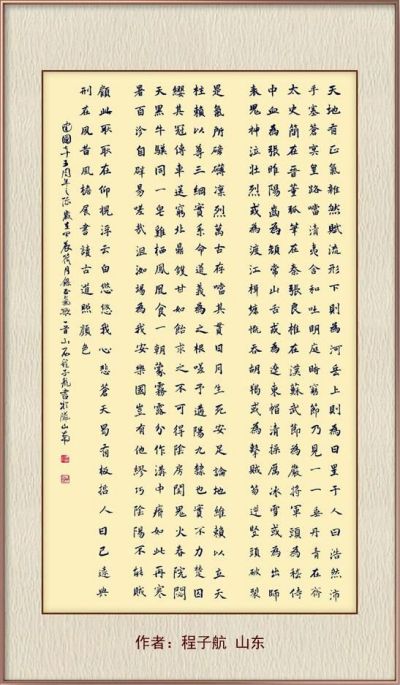 天地有正氣雜然賦流形下則為河岳上則為日星于人曰浩然沛
乎塞蒼冥皇路當清夷含和吐明庭時窮節乃見一一垂丹青在齊
太史簡在晉董狐筆在秦張良椎在漢蘇武節為嚴將軍頭為嵇侍
中血為張睢陽齒為顏常山舌或為遼東帽清操厲冰雪或為出師
表鬼神泣壯烈或為渡江楫慷慨吞胡羯或為擊賊笏逆豎頭破裂
是氣所磅礴凜烈萬古存當其貫日月生死安足論地維賴以立天
柱賴以尊三綱實系命道義為之根嗟予遘陽九隸也實不力楚囚
纓其冠傳車送窮北鼎鑊甘如飴求之不可得陰房闃鬼火春院閟
天黑牛驥同一皂雞栖鳳凰食一朝蒙霧露分作溝中瘠如此再寒
暑百沴自辟易嗟哉沮洳場為我安樂國豈有他繆巧陰陽不能賊
顧此耿耿在仰視浮雲白悠悠我心悲蒼天曷有極哲人日已遠典
刑在夙昔風檐展書讀古道照顏色
國七十五周年之際歲在甲辰荷月錄正氣歌一首山石程子航書於
作者：程子航 山东